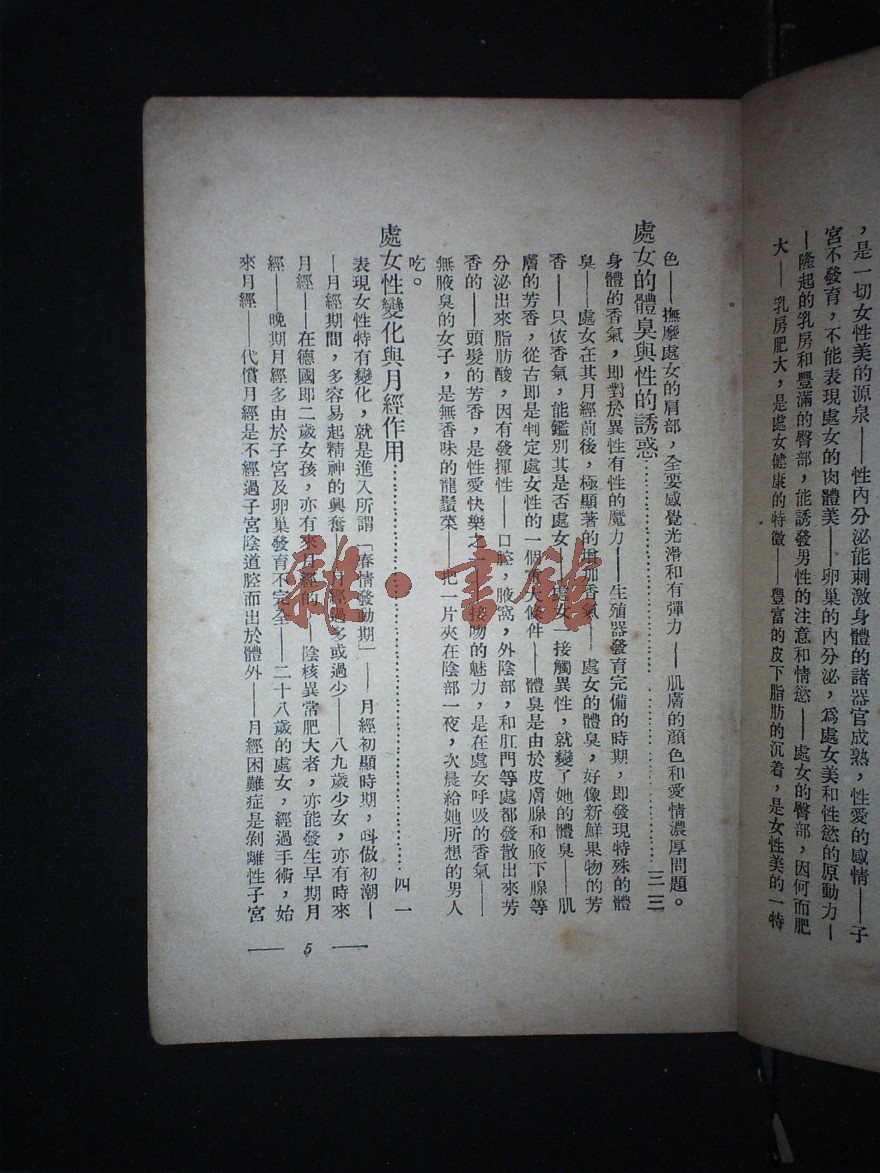 ，是一切女性美的源泉——性內分泌能刺激身體的諸器官成熟，性愛的感情——子
宮不發育，不能表現處女的肉體美——卵巢的內分泌，為處女美和性慾的原動力—
—隆起的乳房和豐滿的臀部，能誘發男性的注意和情慾——處女的臀部，因何而肥
大——乳房肥大，是處女健康的特徵——豐富的皮下脂肪的沉着，是女性美的一特
色——撫摩處女的肩部，全要感覺光滑和有彈力——肌膚的顏色和愛情濃厚問題。
處女的體臭與性的誘惑……………………三三
身體的香氣，即對於異性有性的魔力——生殖器發育完備的時期，即發現特殊的體
臭——處女在其月經前後，極顯著的增加香氣——處女的體臭，好像新鮮果物的芳
香——只依香氣，能鑑別其是否處女——處女一接觸異性，就變了她的體臭——肌
膚的芳香，從古即是判定處女性的一個重大條件——體臭是由於皮膚腺和腋下腺等
分泌出來脂肪酸，因有發揮性——口腔，腋窩，外陰部，和肛門等處都發散出來芳
香的——頭髮的芳香，是性愛快樂之一——接吻的魅力，是在處女呼吸的香氣——
無腋臭的女子，是無香味的龍鬚菜——把一片夾在陰部一夜，次晨給她所想的男人
吃。
處女性變化與月經作用……………………四一
表現女性特有變化，就是進入所謂「春情發動期」——月經初顯時期，呌做初潮—
—月經期間，多容易起精神的興奮——月經過多或過少——八九歲少女，亦有時來
月經——在德國即二歲女孩，亦有來月經的——陰核異常肥大者，亦能發生早期月
經——晚期月經多由於子宮及卵巢發育不完全——二十八歲的處女，經過手術，始
來月經——代償月經是不經過子宮陰道腔而出於體外——月經困難症是剝離性子宮
— 5 —
雜·書館